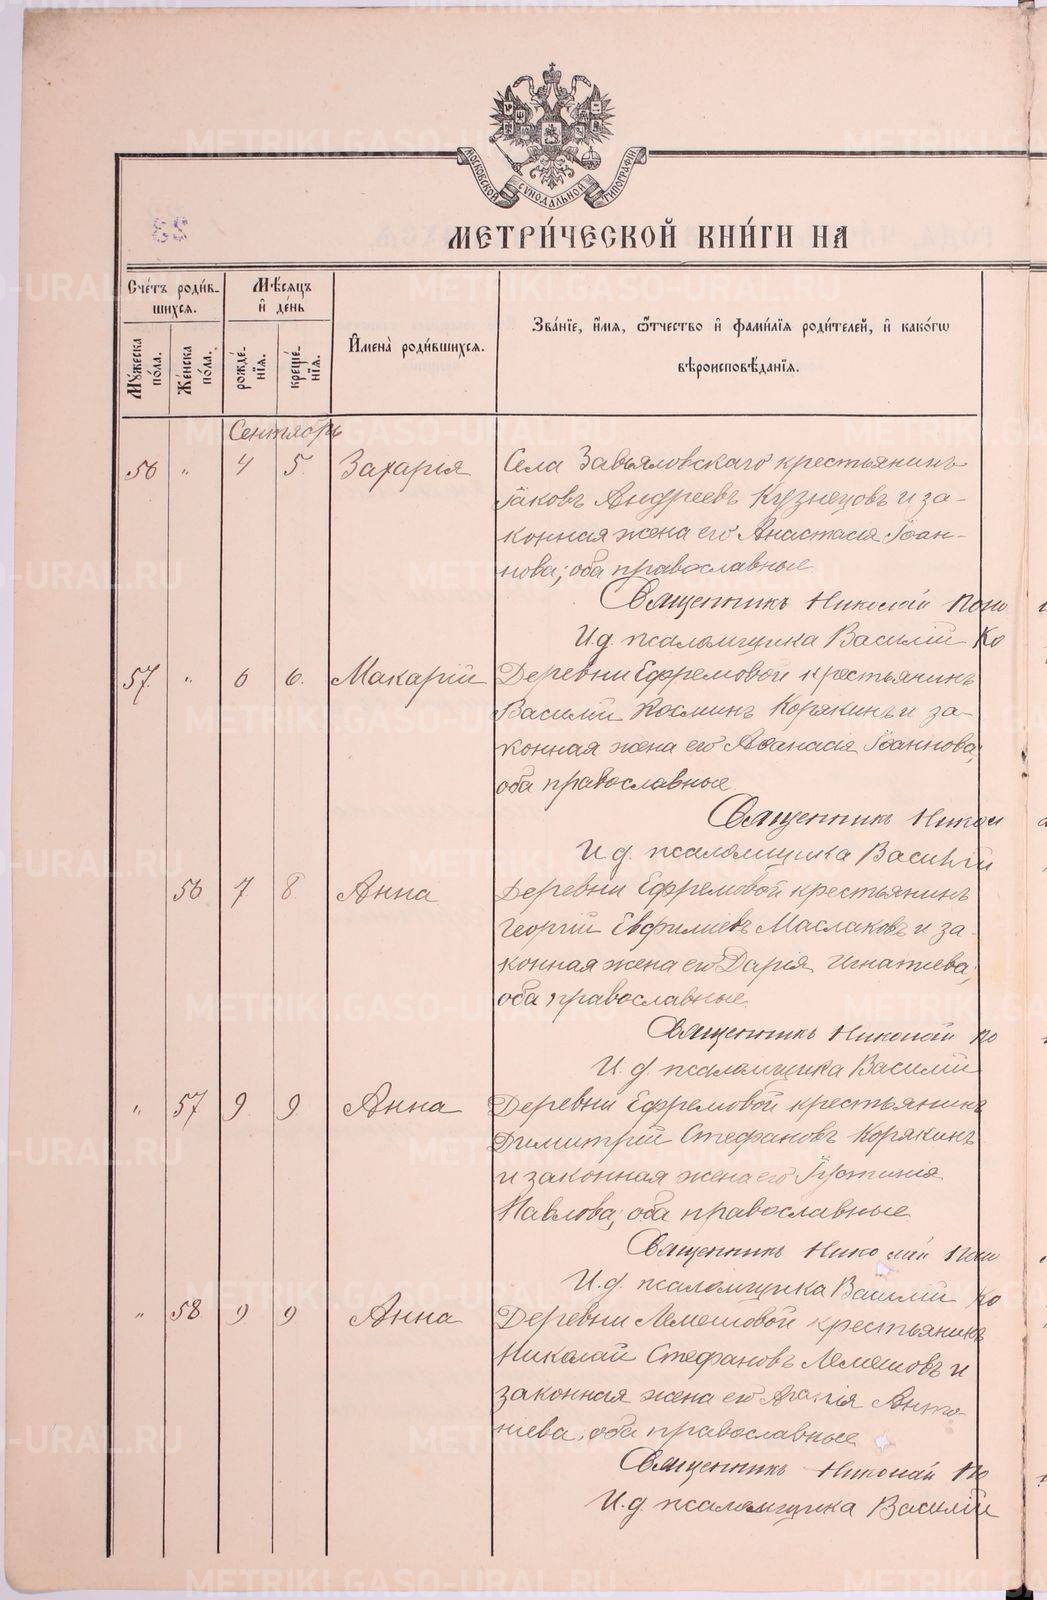 МОСКОВСКОЙ СѴНОДАЛЬНОЙ ТИПОГРАФІИ
МЕТРИ́ЧЕСКОЙ КНИ́ГИ НА
Сче́тъ роди́вшихся.
Мꙋ́жеска по́ла.
Же́нска по́ла.
Мѣ́сяцъ и҆ де́нь
рожде́нїя.
креще́нїя.
И҆мена̀ роди́вшихся.
Зва́нїе, и҆́мя, ѻ҆́тчество и҆ фами́лїя роди́телей, и҆ како́гѡ
вѣроисповѣ́данїя.
Сентябрь
56 " 4 5. Захарія Села Завьяловскаго крестьянинъ
Іаковъ Андреевъ Кузнецовъ и за-
конная жена его Анастасія Іоан-
нова; оба православные
Священникъ Николай Попо
И.д. псаломщика Василій Ко
57. " 6 6. Макарій Деревни Ефремовой крестьянинъ
Василій Косминъ Корякинъ и за-
конная жена его Аѳанасія Іоаннова;
оба православные.
Священникъ Никол
И.д. псаломщика Василій
56 7 8. Анна Деревни Ефремовой крестьянинъ
Георгій Евфиміевъ Маслаковъ и за-
конная жена его Дарія Игнатіева,
оба православные
Священникъ Николай По
И.д. псаломщика Василій
" 57 9 9 Анна Деревни Ефремовой крестьянинъ
Димитрій Стефановъ Корякинъ
и законная жена его Іустинія
Павлова; оба православные
Священникъ Николай Попо
И.д. псаломщика Василій Ко
" 58 9 9 Анна Деревни Лемешовой крестьянинъ
Николай Стефановъ Лемешовъ и
законная жена его Агапія Анто-
ніева, оба православные
Священникъ Николай По
И.д. псаломщика Василій